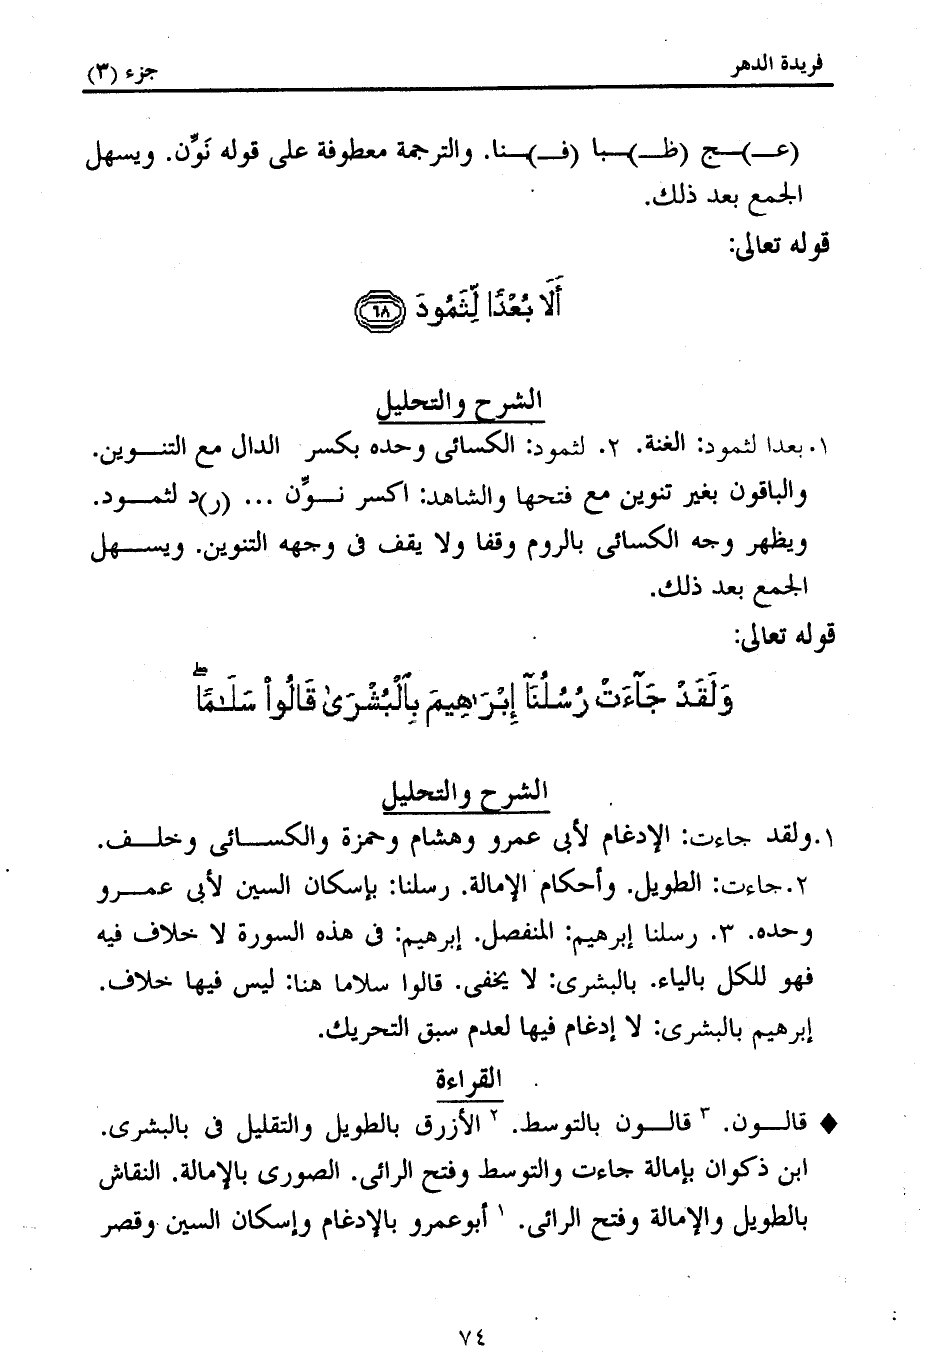 فريدة الدهر
جزء (٣)
(عـ)ـج (ظـ)ـبا (فـ)ـنا. والترجمة معطوفة على قوله نَوِّن. ويسهل
الجمع بعد ذلك.
قوله تعالى:
أَلَا بُعْدًا لِّثَمُودَ ٦٨
الشرح والتحليل
١. بعدا لثمود: الغنة. ٢. لثمود: الكسائى وحده بكسر الدال مع التنـــوين.
والباقون بغير تنوين مع فتحها والشاهد: اكسر نــوِّن ... (ر)د لثمـــود.
ويظهر وجه الكسائى بالروم وقفا ولا يقف فى وجهه التنوين. ويســـهل
الجمع بعد ذلك.
قوله تعالى:
وَلَقَدْ جَآءَتْ رُسُلُنَآ إِبْرَٰهِيمَ بِٱلْبُشْرَىٰ قَالُوا۟ سَلَٰمًا ۖ
الشرح والتحليل
١. ولقد جاءت: الإدغام لأبى عمرو وهشام وحمزة والكســـائى وخلـــف.
٢. جاءت: الطويل. وأحكام الإمالة. رسلنا: بإسكان السين لأبى عمـــرو
وحده. ٣. رسلنا إبرهيم: المنفصل. إبرهيم: فى هذه السورة لا خلاف فيه
فهو للكل بالياء. بالبشرى: لا يخفى. قالوا سلاما هنا: ليس فيها خلاف.
إبرهيم بالبشرى: لا إدغام فيها لعدم سبق التحريك.
القراءة
♦ قالـــون. ٣ قالـــون بالتوسط. ٢ الأزرق بالطويل والتقليل فى بالبشرى.
ابن ذكوان بإمالة جاءت والتوسط وفتح الرائى. الصورى بالإمالة. النقاش
بالطويل والإمالة وفتح الرائى. ١ أبوعمرو بالإدغام وإسكان السين وقصر
٧٤